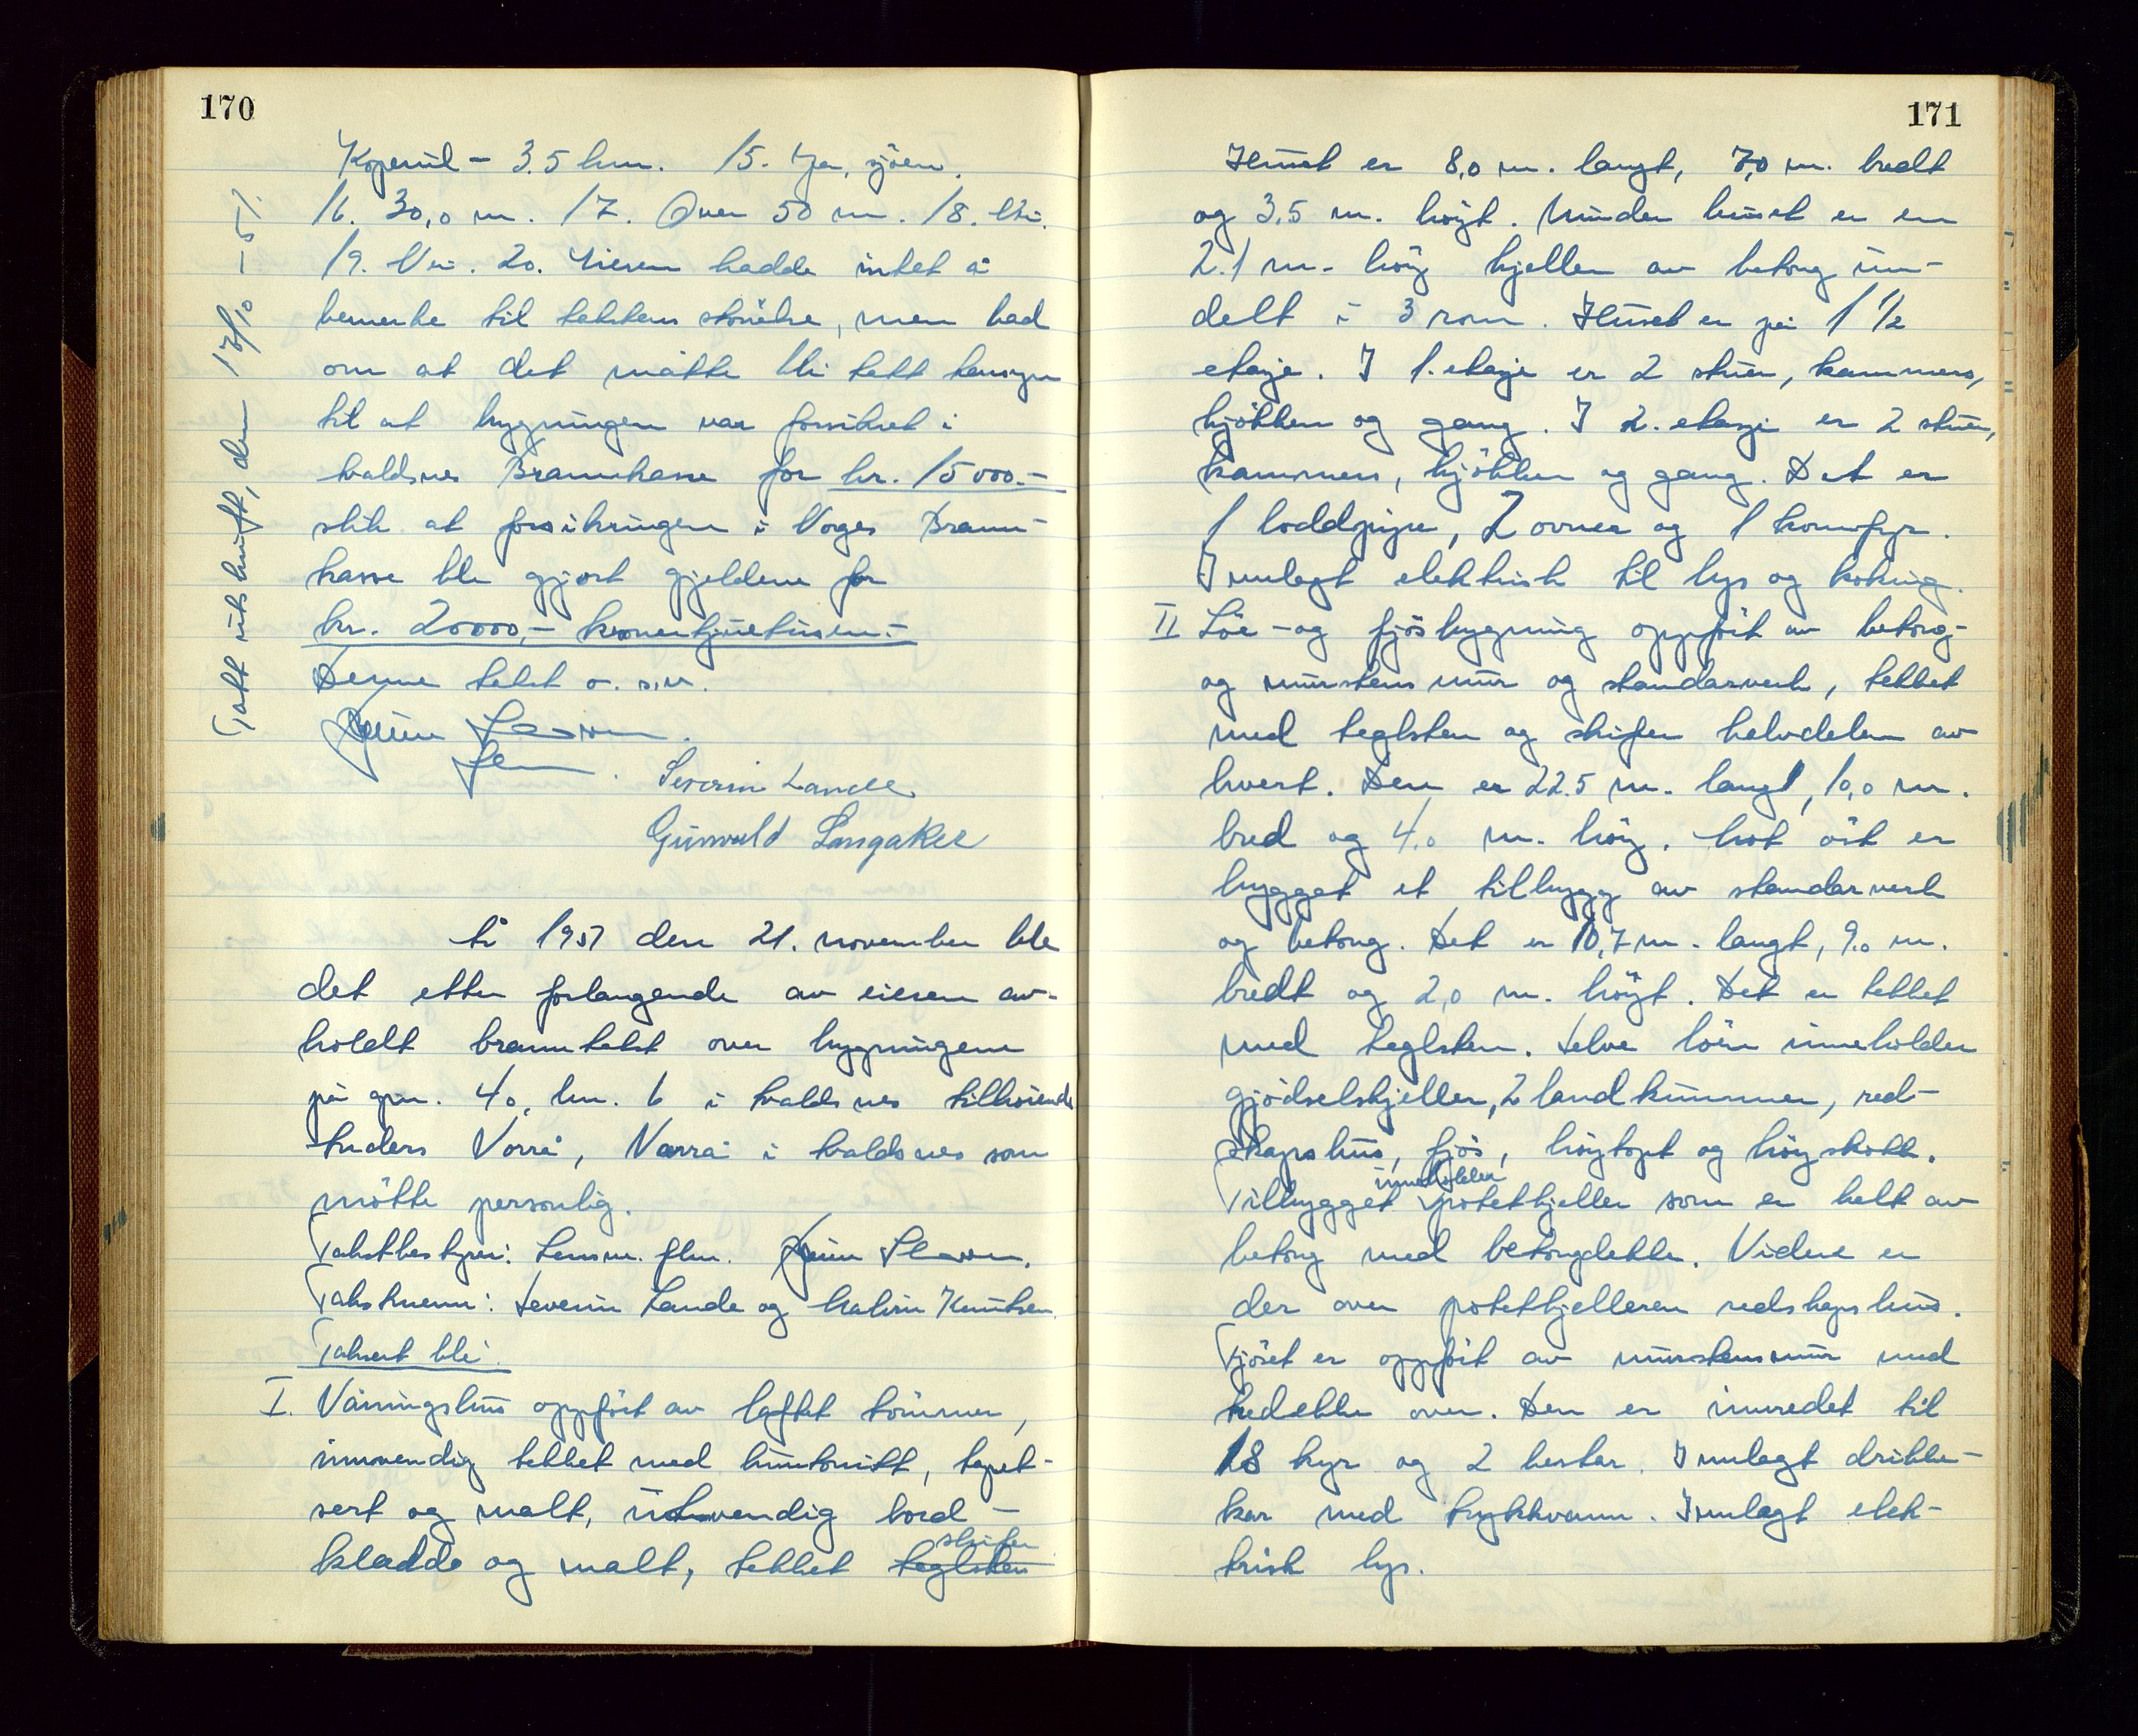 170
Kopervik - 3.5 km. 15. Ja, sjöen.
16. 30,0 m. 17. Over 50 m. 18. Nei.
19. Nei. 20. Eieren hadde intet å
bemerke til takstens störelse, men bad
om at det måtte bli tatt hensyn
til at bygningen var forsikret i
Avaldsnes Brannkasse for kr. 15000.-
slik at forsikringen i Norges Brann-
kasse ble gjort gjeldene for
kr. 20000,- kronertjuetusen.-
Denne takst o. s.v.
Severin Lande
Gunvald Langaker
Tatt utskrift, den 17/10 - 51.
År 1951 den 21. november ble
det etter forlangende av eieren av-
holdt branntakst over bygningene
på gnr. 40, bnr. 6 i Avaldsnes tilhörende
Anders Vorrå, Vorrå i Avaldsnes som
mötte personlig.
Takstbestyrer: Lensm. flm.
Takstmenn: Severin Lande og Malvin Knutsen.
Taksert ble:
I. Våningshus oppfört av laftet tömmer,
innvendig tekket med huntonitt, tapet-
sert og malt, utvendig bord-
skifer
kledde og malt, tekket teglsten
171
Huset er 8,0 m. langt, 7,0 m. bredt
og 3.5 m. höyt. Under huset er en
2.1 m. höy kjeller av betong inn-
delt i 3 rom. Huset er på 1 1/2
etasje. I 1. etasje er 2 stuer, kammers,
kjökken og gang. I 2. etasje er 2 stuer,
kammers, kjökken og gang. Det er
1 loddpipe, 2 ovner og 1 komfyr.
Innlagt elektrisk til lys og koking.
II Löe- og fjösbygning oppfört av betong-
og murstens mur og standarverk, tekket
med teglsten og skifer halvdelen av
hvert. Den er 22.5 m. langt, 10,0 m.
bred og 4.0 m. höy. Mot öst er
bygget et tilbygg av standarverk
og betong. Det er 10,7 m. langt, 9.0 m.
bredt og 2,0 m. höyt. Det er tekket
med teglsten. Selve löen inneholder
gjödselskjeller, 2 landkummer, red-
skapshus, fjös, höytopt og höyskott.
inneholder
Tilbygget potetkjeller som er helt av
betong med betongdekke. Videre er
der over potetkjelleren redskapshus.
Fjöset er oppfört av murstensmur med
tredekke over. Den er innredet til
18 kyr og 2 hester. Innlagt drikke-
kar med trykkvann. Innlagt elek-
trisk lys.